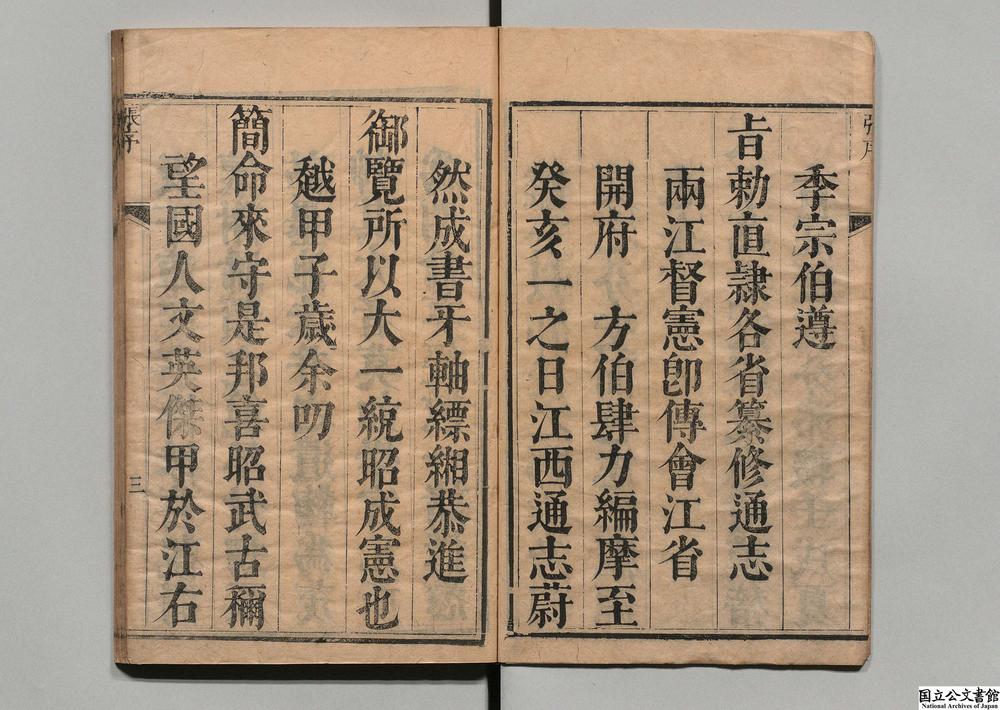 季宗伯遵
旨勅直隷各省纂修通志
兩江督憲卽傳會江省
開府　方伯肆力編摩至
癸亥一之日江西通志蔚
然成書牙軸縹緗恭進
御覽所以大一統昭成憲也
越甲子歲余叨
簡命來守是邦喜昭武古稱
望國人文英傑甲於江右
張序
三
国立公文書館
National Archives of Japan